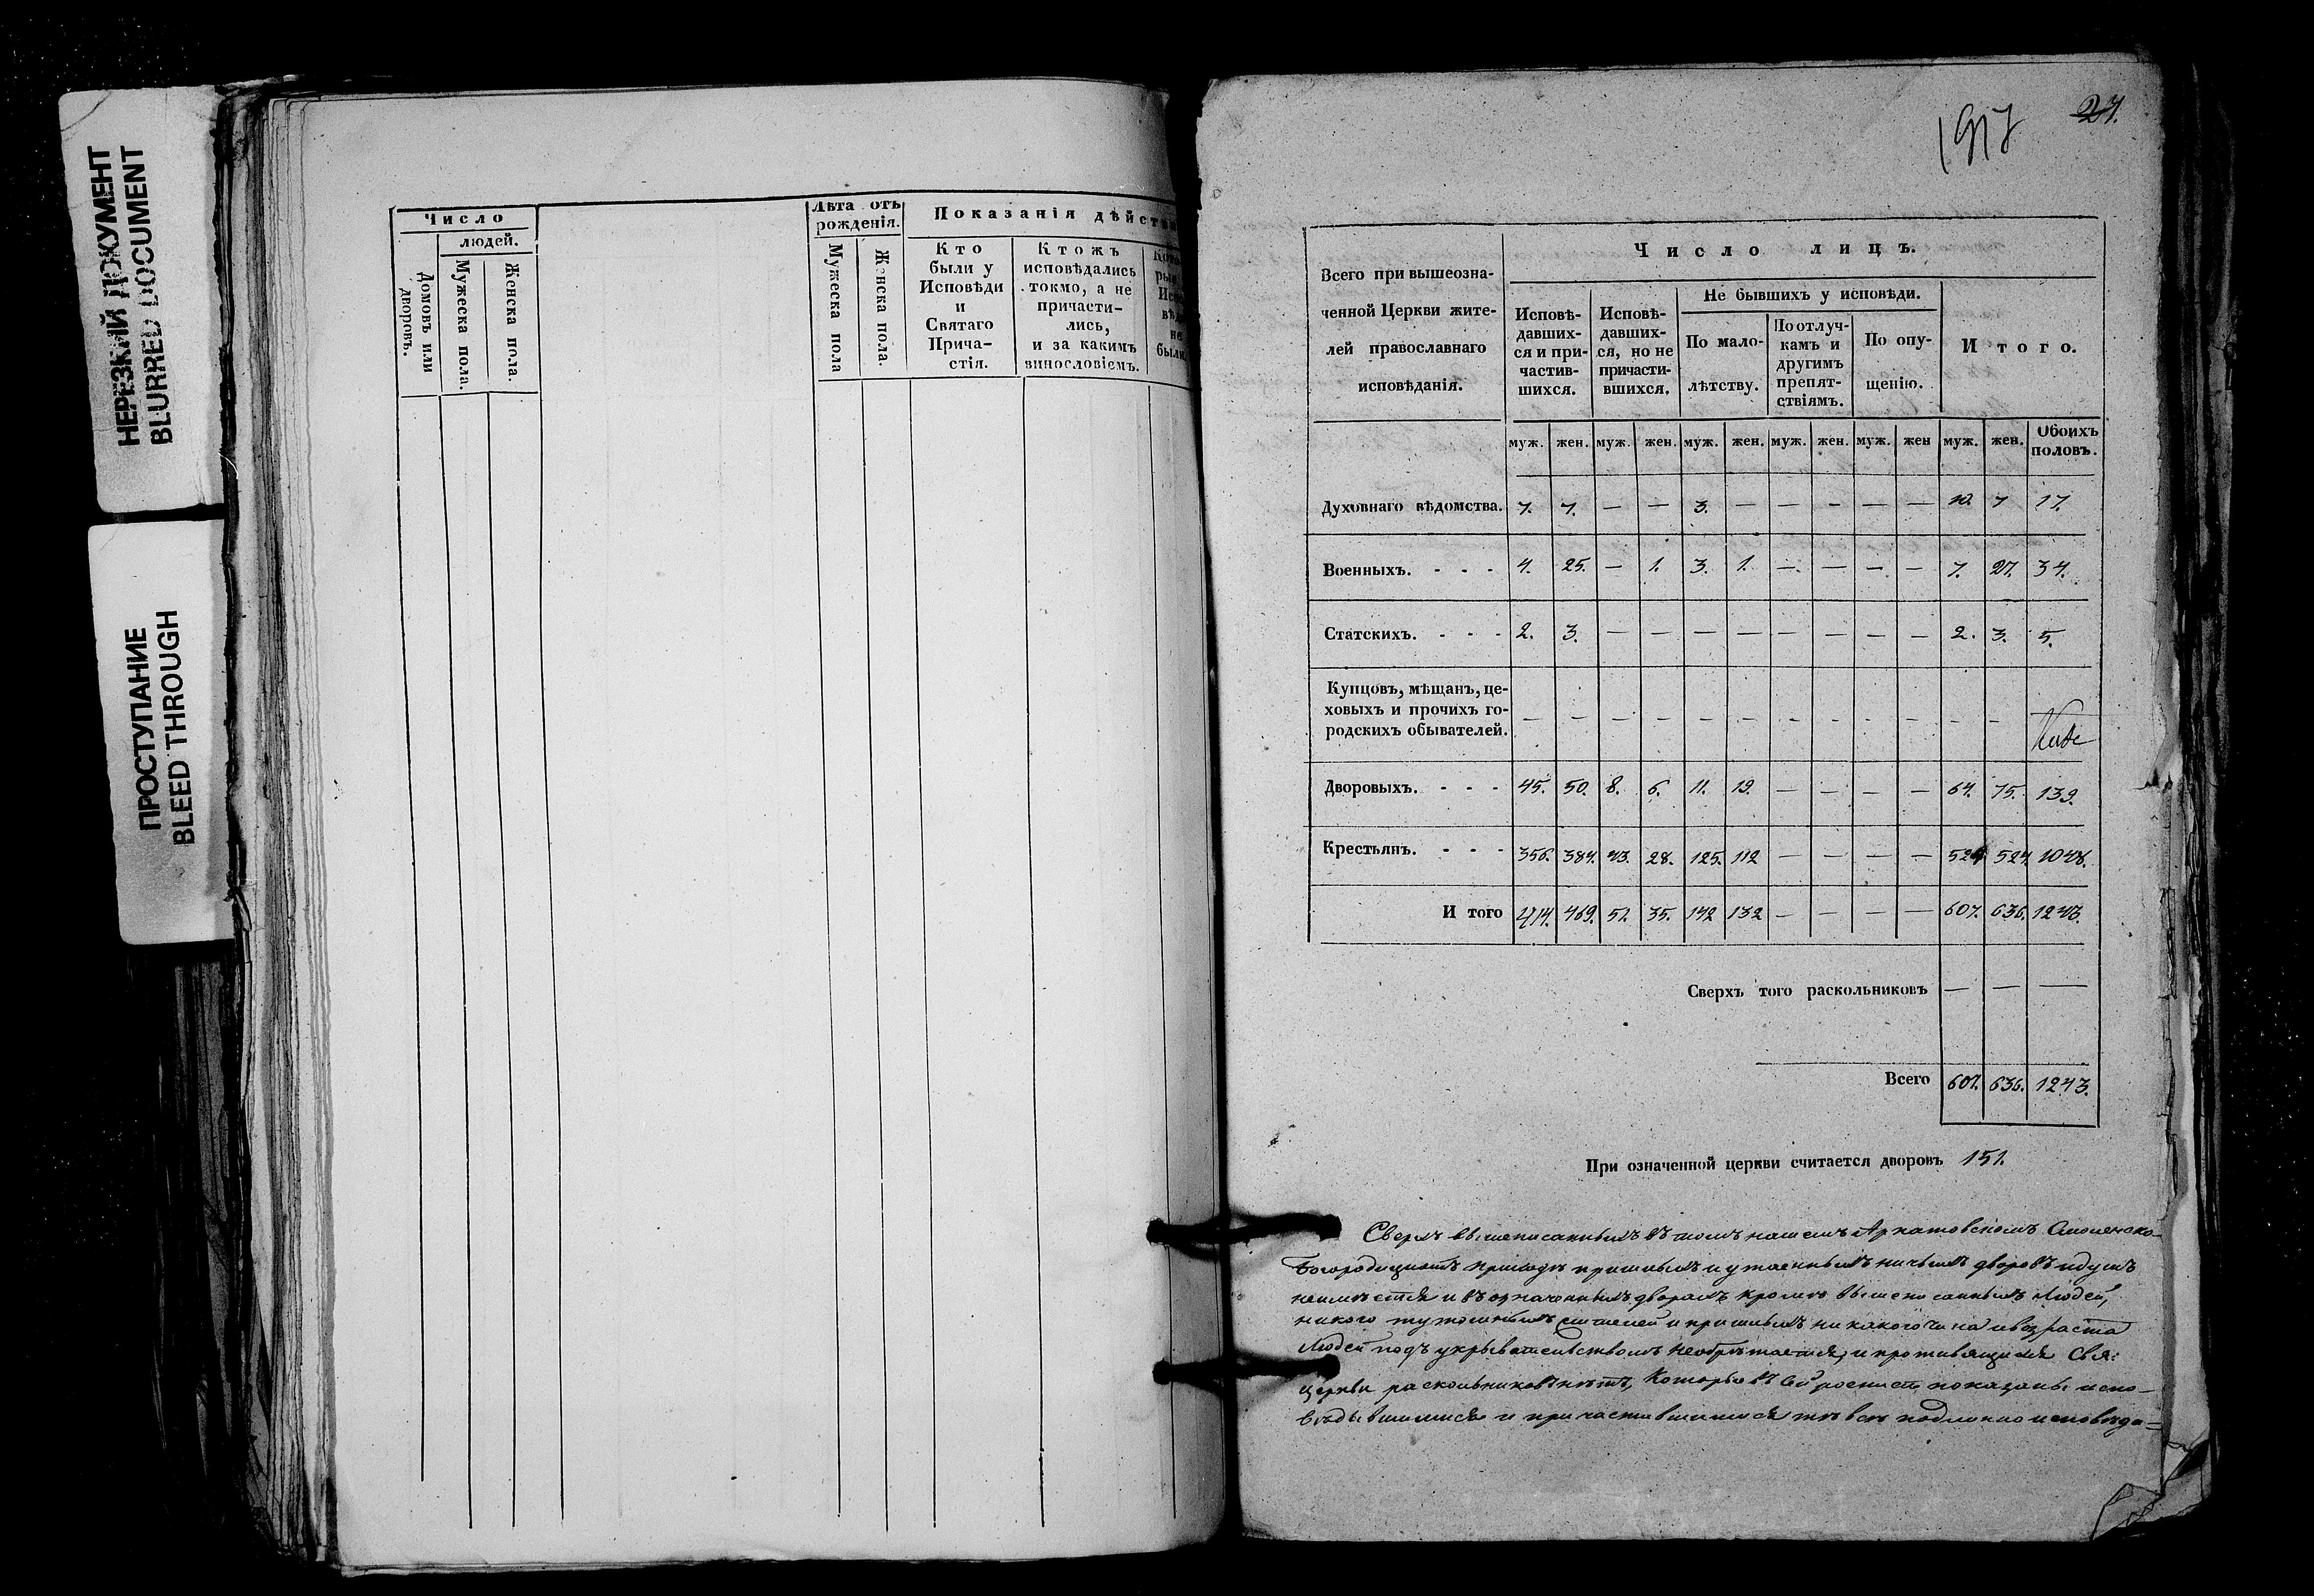 НЕРЕЗКИЙ ДОКУМЕНТ
BLURRED DOCUMENT
ПРОСТУПАНИЕ
BLEED THROUGH
Число
людей.
Домовъ или дворовъ.
Мужеска пола.
Женска пола.
Лѣта отъ рожденія.
Мужеска пола
Женска пола.
Показанія дѣйст
Кто
были у
Исповѣди
и
Святаго
Прича-
стія.
Ктожъ
исповѣдались
токмо, а не
причасти-
лись,
и за какимъ
винословіемъ.
не
были
1917
27.
Всего при вышеозна-
ченной Церкви жите-
лей православнаго
исповѣданія.
Число лицъ.
Исповѣ-
давших-
ся и при-
частив-
шихся.
Исповѣ-
давших-
ся, но не
причасти-
вшихся.
Не бывшихъ у исповѣди.
По мало-
лѣтству.
По отлуч-
камъ и
другимъ
препят-
ствіямъ.
По опу-
щенію.
Итого.
муж. жен. муж. жен. муж. жен. муж. жен. муж. жен муж. жен. Обоихъ половъ.
Духовнаго вѣдомства. 7. 7. — — 3. — — — — — 10. 7 17.
Военныхъ. - - - 4. 25. — 1. 3. 1. — — — — 7. 27. 34.
Статскихъ. - - - 2. 3. — — — — — — — — 2. 3. 5.
Купцовъ, мѣщанъ, це-
ховыхъ и прочихъ го-
родскихъ обывателей. — — — — — — — — — — — — —
Дворовыхъ. - - - 45. 50. 8. 6. 11. 19. — — — — 64. 75. 139.
Крестьянъ. - - - 356. 384. 43. 28. 125. 112 — — — — 524 524. 1048.
И того 414. 469. 51. 35. 142 132 — — — — 607. 636. 1243.
Сверхъ того раскольниковъ — — —
Всего 607. 636. 1243.
При означенной церкви считается дворовъ 151.
Сверхъ вышеписанныхъ въ томъ нашемъ Аркатовскомъ Смоленско-
Богородицкомъ приходѣ пришлыхъ и утаенныхъ ничьихъ дворовъ и душъ
неимѣется и въ означенныхъ дворахъ кромѣ вышеписанныхъ людей,
никого тутошныхъ жителей и пришлыхъ никакого чина и возраста
людей подъ укрывательствомъ необрѣтается, и противящихся Свя:
церкви раскольниковъ нѣтъ, Которые въ сей росписи показаны испо-
вѣдывшимися и причастившимися тѣ всѣ подлинно исповѣда=